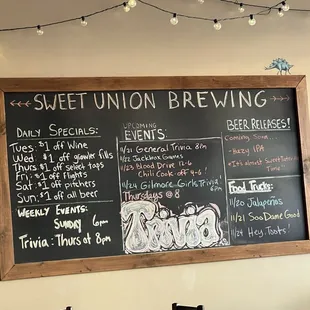 SWEET UNION BREWING
DAILY SPECIALS:
Tues: $1 off Wine
Wed: $1 off growler fills
Thurs $1 off select taps
Fri: $1 off flights
Sat: $1 off pitchers
Sun: $1 off all beer
WEEKLY EVENTS:
SUNDAY 6pm
Trivia: Thurs at 8pm
UPCOMING
EVENTS:
11/21 General Trivia 8pm
11/22 Jackbox Games
11/23 Blood Drive 11-2!
Chili Cook off 4-6!
11/24 Gilmore Girls Trivia!
Thursdays @ 8
Trivia
BEER RELEASES!
Coming Soon...
- Hazy IPA
-It's almost Sweet
Time
Food Trucks:
11/20 Jalapeñas
11/21 Soo Dame Good
11/24 Hey, Toots!